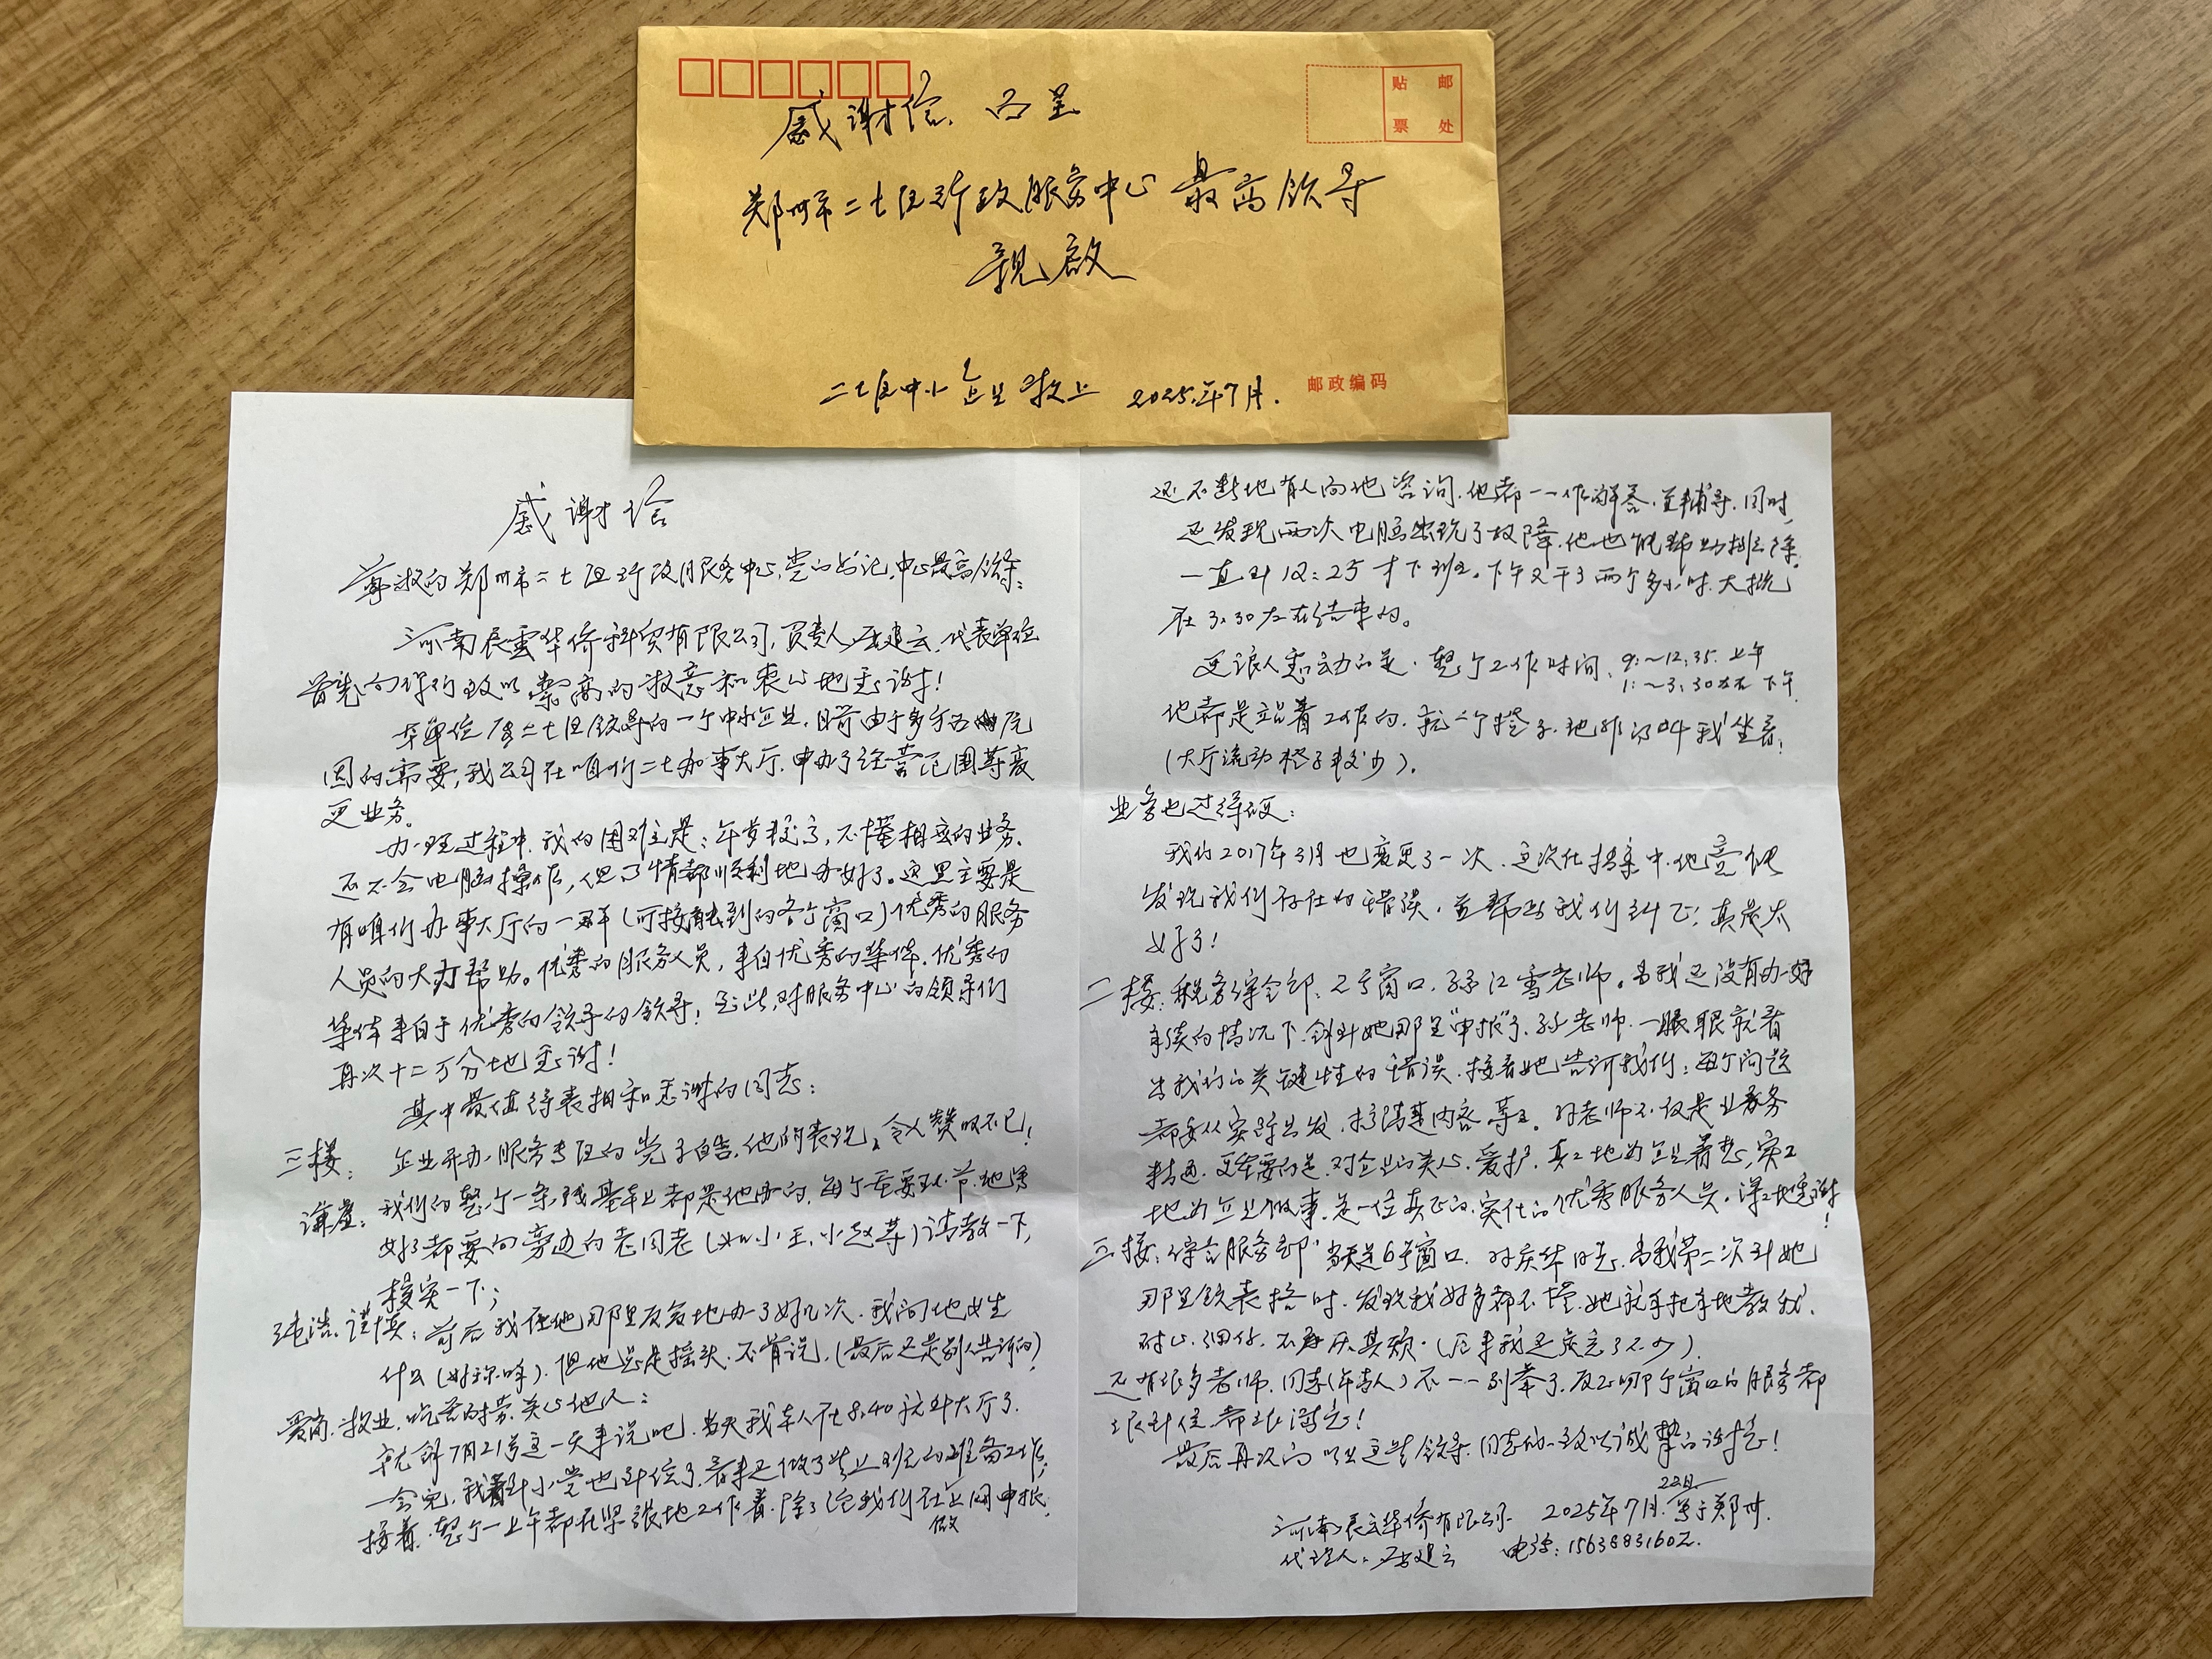 贴 邮
票 处
感谢信 面呈
郑州市二七区行政服务中心最高领导
亲启
二七区中小企业敬上 2025.年7月.
邮政编码
感谢信
尊敬的郑州市二七区行政服务中心,党的书记,中心最高领导:
河南辰雲华侨科贸有限公司,负责人 建云,代表单位
首先向你们致以崇高的敬意和衷心地感谢!
本单位属二七区领导的一个中小企业,目前由于多方面的原
因的需要,我公司在咱们二七办事大厅,申办了经营范围等变
更业务。
办理过程中,我的困难主是:年岁较高,不懂相应的业务,
还不会电脑操作,但事情都顺利地办好了。这里主要是
有咱们办事大厅的一群(可接触到的各个窗口)优秀的服务
人员的大力帮助。优秀的服务人员,来自优秀的集体,优秀的
集体来自于优秀的领导的领导!至此,对服务中心的领导们
再次十二万分地感谢!
其中最值得表扬和感谢的同志:
三楼: 企业开办服务专区的党子皓,他的表现,令人赞叹不已!
谦虚: 我们的整个一条线基本上都是他办的,每个重要环节,他填
好了都要向旁边的老同志(如小王,小赵等)请教一下,
核实一下;
纯洁、谨慎:前后我在他那里反复地办了好几次,我问他姓
什么(好称呼),但他总是摇头,不肯说,(最后还是别人告诉的)
爱岗、敬业,吃苦耐劳,关心他人:
就拿7月21号这一天来说吧,当天我本人在8.40就到大厅了.
一会儿,我看到小党也到位了,看来还做了些上班的准备工作,
接着,整个一上午都在紧张地工作着,除了给我们在做上网申报,
还不断地有人向他咨询,他都一一作解答,并辅导,同时,
还发现两次电脑出现了故障,他也能帮助排除,
一直到12:25才下班。下午又干了两个多小时,大概
在3.30左右结束的。
更让人感动的是,整个工作时间, 9:~12:35. 上午
1:~3:30左右 下午
他都是站着工作的,就一个凳子,他非得叫我坐着!
(大厅流动凳子较少).
业务也过得硬:
我们2017年3月也变更了一次,这次在档案中,他竟能
发现我们存在的错误,并帮助我们纠正,真是太
好了!
二楼:税务综合部,2号窗口,孙江雪老师。当我还没有办好
手续的情况下,拿到她那里"申报"了,孙老师一眼就看
出我们的关键性的错误,接着她告诉我们:每个问题
都要从实际出发,搞清楚内容,等等。孙老师不仅是业务
精通,更重要的是,对企业的关心、爱护,真真地为企业着想,实实
地为企业做事,是一位真正的,实在的优秀服务人员。深深地感谢
!
三楼:综合服务部 当天是6号窗口,孙庆华同志,当我第二次到她
那里领表格时,发现我好多都不懂,她就手把手地教我,
耐心、细仔,不厌其烦.(后来我还忘了不少).
还有很多老师,同志(年青人)不一一列举了,反正哪个窗口的服务都
很到位,都很满意!
最后再次向以上这些领导,同志们一致以诚挚的谢意!
22日
河南辰云华侨有限公司 2025年7月.等于郑州.
代理人: 建云 电话:15638831602.